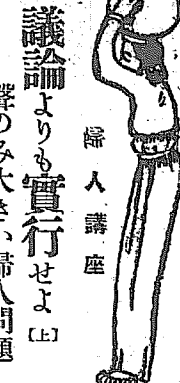 婦人講座
議論よりも實行せよ[上]
聲のみ大きい婦人問題